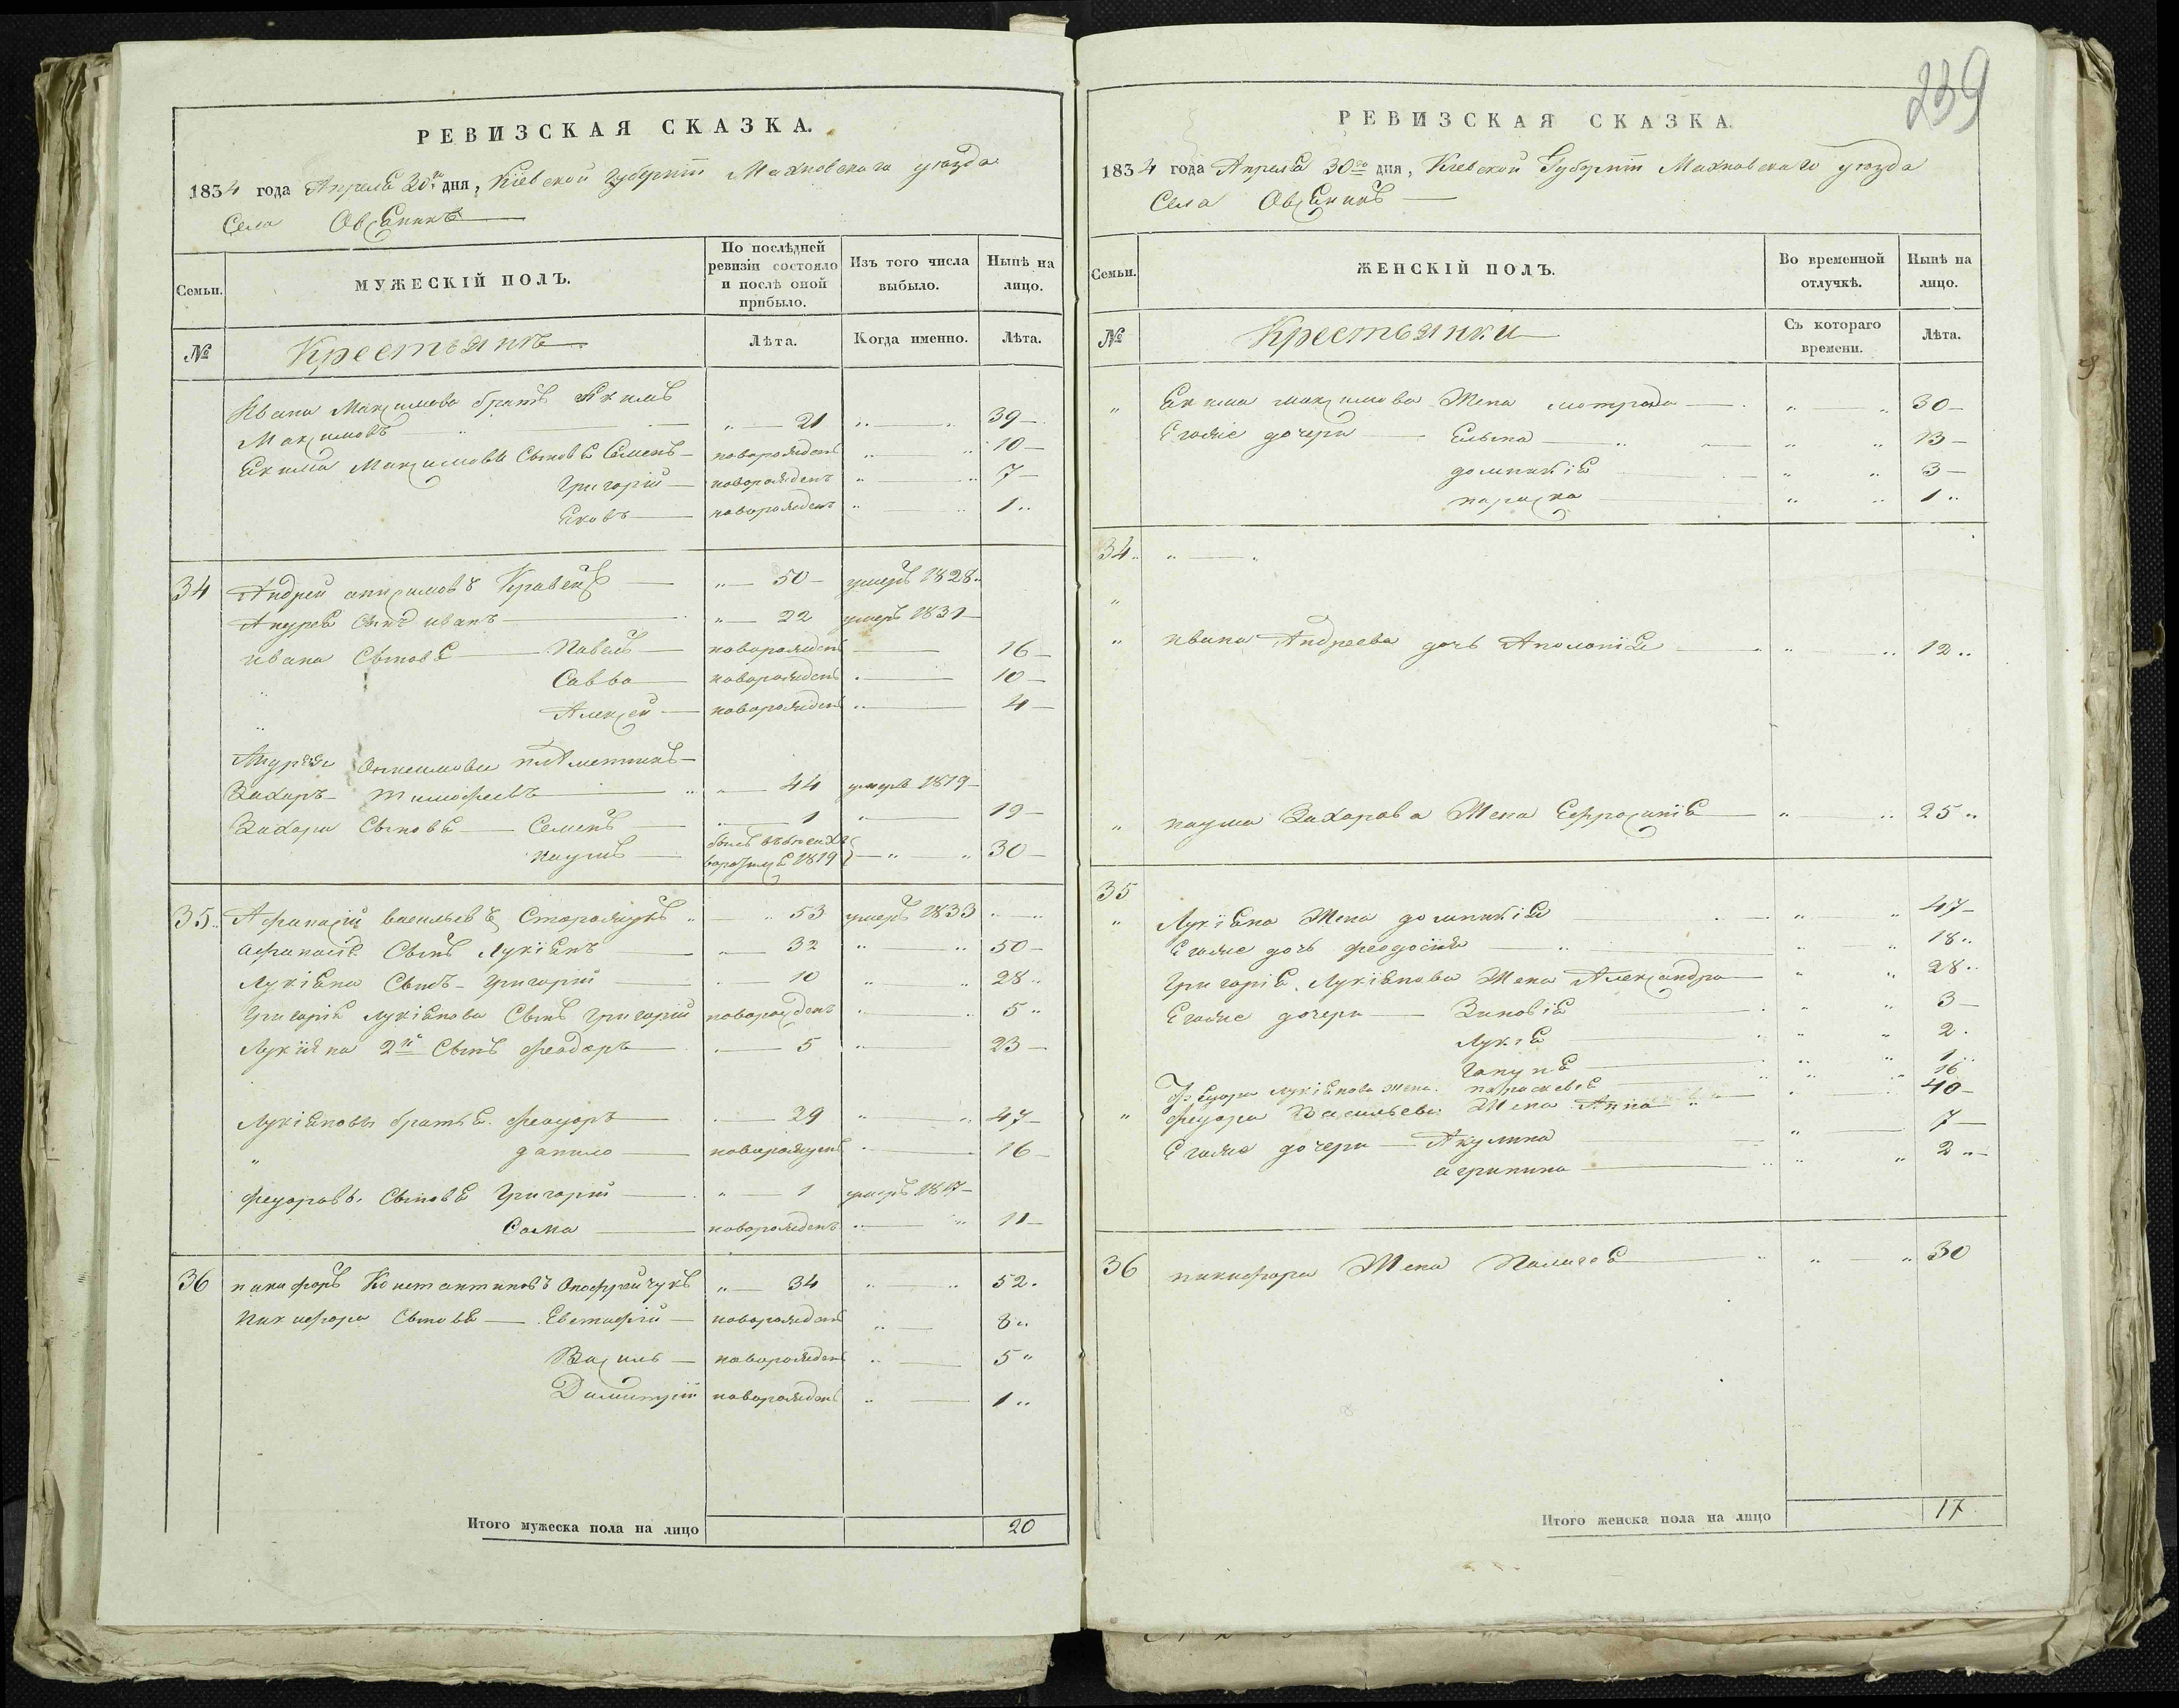 РЕВИЗСКАЯ СКАЗКА.
1834 года Апреля 30го дня, Кіевской Губерніи Махновскаго уезда
Села Овсяникъ
Семьи. МУЖЕСКІЙ ПОЛЪ. По послѣдней ревизіи состояло и послѣ оной прибыло. Изъ того числа выбыло. Нынѣ на лицо.
№ Крестьянъ Лѣта. Когда именно. Лѣта.
Ивана Максимова братъ Якимъ
Максимовъ 21 39
Екима Максимова Сыновя Семенъ новорожденъ 10
Григорій новорожденъ 7
Яковъ новорожденъ 1
34 Андрей Кравецъ 50 умеръ 1828
Андрея Сынъ иванъ 22 умеръ 1831
ивана Сыновя Павелъ новорожденъ 16
Савва новорожденъ 10
Алексей новорожденъ 4
Андрея племенникъ
Захаръ Тимофеевъ 44 умеръ 1819
Захара Сыновя Семенъ 1 19
Наумъ былъ въ бегахъ 1819 30
35 Афанасій васильевъ Сторожукъ 53 умеръ 1833
афанасія Сынъ Лукіянъ 32 50
Лукіяна Сынъ Григорій 10 28
Григорія Лукіянова Сынъ Григорій новорожденъ 5
Лукіяна 2й Сынъ Феодоръ 5 23
Лукіяновы братья Феодоръ 29 47
данило новорожденъ 16
Федоровы Сыновя Григорій 1 умеръ 1817
Сома новорожденъ 11
36 никифоръ Константиновъ Онофрейчукъ 34 52
Никифора Сыновя Евстафій новорожденъ 8
Василь новорожденъ 5
Димитрій новорожденъ 1
Итого мужеска пола на лицо 20
239
РЕВИЗСКАЯ СКАЗКА.
1834 года Апреля 30го дня, Кіевской Губерніи Махновскаго уезда
Села Овсяникъ
Семьи. ЖЕНСКІЙ ПОЛЪ. Во временной отлучкѣ. Нынѣ на лицо.
№ Крестьянки Съ котораго времени. Лѣта.
Екима максимова Жена мотрона 30
Егоже дочери Ельена 13
домникія 3
параска 1
34
ивана Андреева дочь Аполонія 12
наума Захарова Жена Ефросинія 25
35
Лукіяна Жена домникія 47
Егоже дочь феодосия 18
Григорія Лукіянова Жена Александра 28
Егоже дочери Зиновія 3
Лукія 2
Гапуня 1
Федора Лукіянова жена параскевія 16
Федора Васильева Жена Анна 40
Егоже дочери Акулина 7
агрипина 2
36 никифора Жена Палагея 30
Итого женска пола на лицо 17